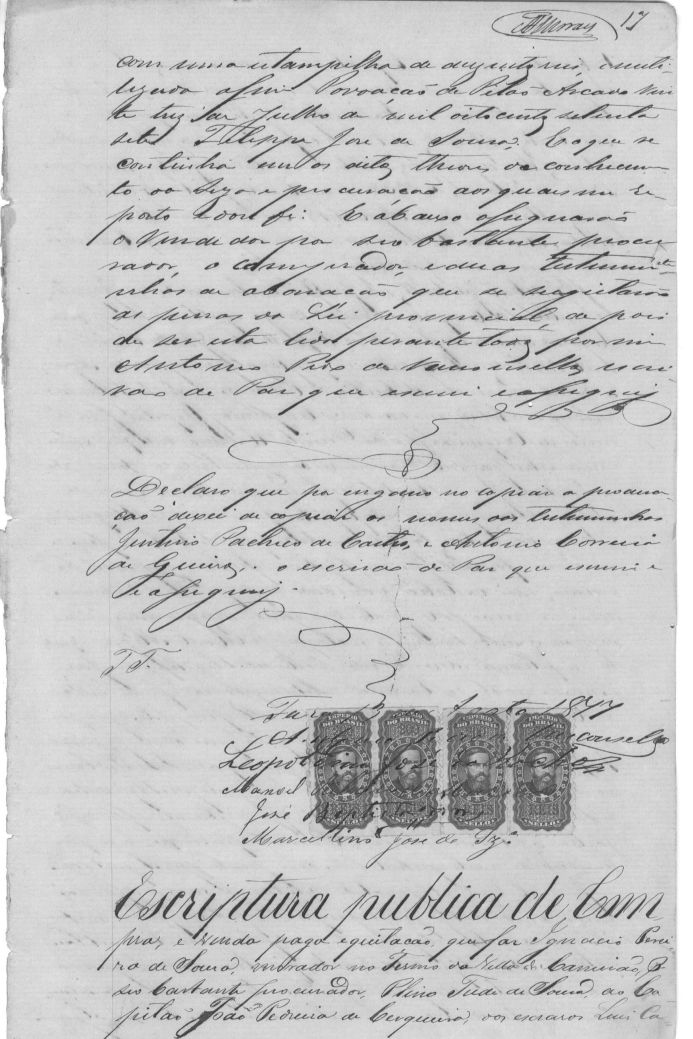 17
com uma estampilha de duzentos reis inuti-
lizada assim Povoação de Pilão Arcado vin-
te trez de Julho de mil oitocentos setenta
sete Felippe José de Sousa. E o que se
continha em os ditos theores de conhecimen-
to da Siza e procuração aos quaes me re-
porto e dou fé: E abaixo assignarão
o Vendedor por seo bastante procu-
rador, o comprador, e duas testemu-
nhas de abonação que se sugeitarão
as penas da Lei provincial, de pois
de ser esta lida perante todos por mim
Antonio de Vasconcellos escri-
vão de Paz que escrevi e assignei
Declaro que por engano no copiar a procura-
ção deixei de copiar os nomes das testemunhas
Pacheco de Castro, e Antonio Correia
de o escrivão de Paz que escrevi e
assignei.
1877
IMPERIO DO BRASIL IMPERIO DO BRASIL IMPERIO DO BRASIL IMPERIO DO BRASIL
Leopoldino José
Manoel
José Baptista
Marcellino José de
Escriptura publica de Com
pra, e venda paga e quitação, que faz Ignacio Perei
ra de Sousa, morador no Termo da Villa de Camisão, P.
seo bastante procurador, Plinio Tude de Sousa, ao Ca-
pitão João Pedreira de Cerqueira, dos escravos Luis Ca-